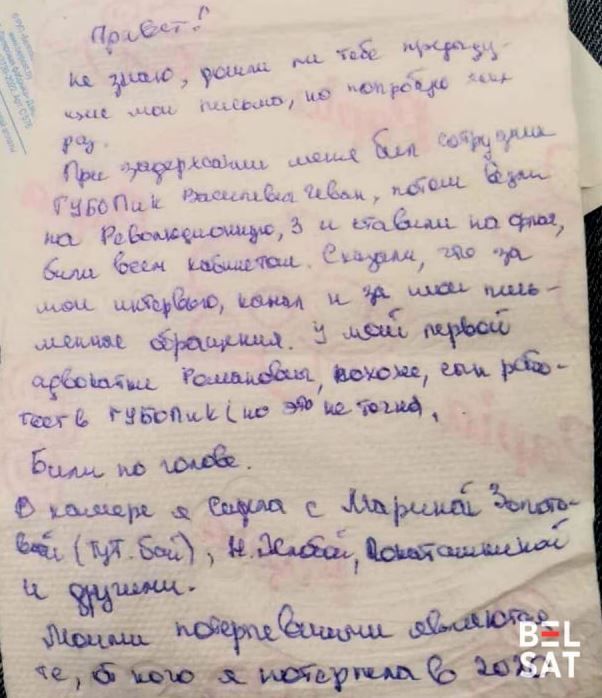 Привет!
не знаю, дошли ли тебе предыду-
щие мои письма, но попробую еще
раз.
При задержании меня бил сотрудник
ГУБОПиК Василевич Иван, потом везли
на Революционную, 3 и ставили на флаг,
били всем кабинетом. Сказали, что за
мои интервью, канал и за мои пись-
менные обращения. У моей первой
адвокатки Романович, похоже, сын рабо-
тает в ГУБОПиК (но это не точно).
Били по голове.
В камере я сидела с Мариной Золото-
вой (тут.бай), Н. Жлобой, Локаташкиной
и другими.
Моими потерпевшими являются
те, от кого я потерпела в
BEL
SAT